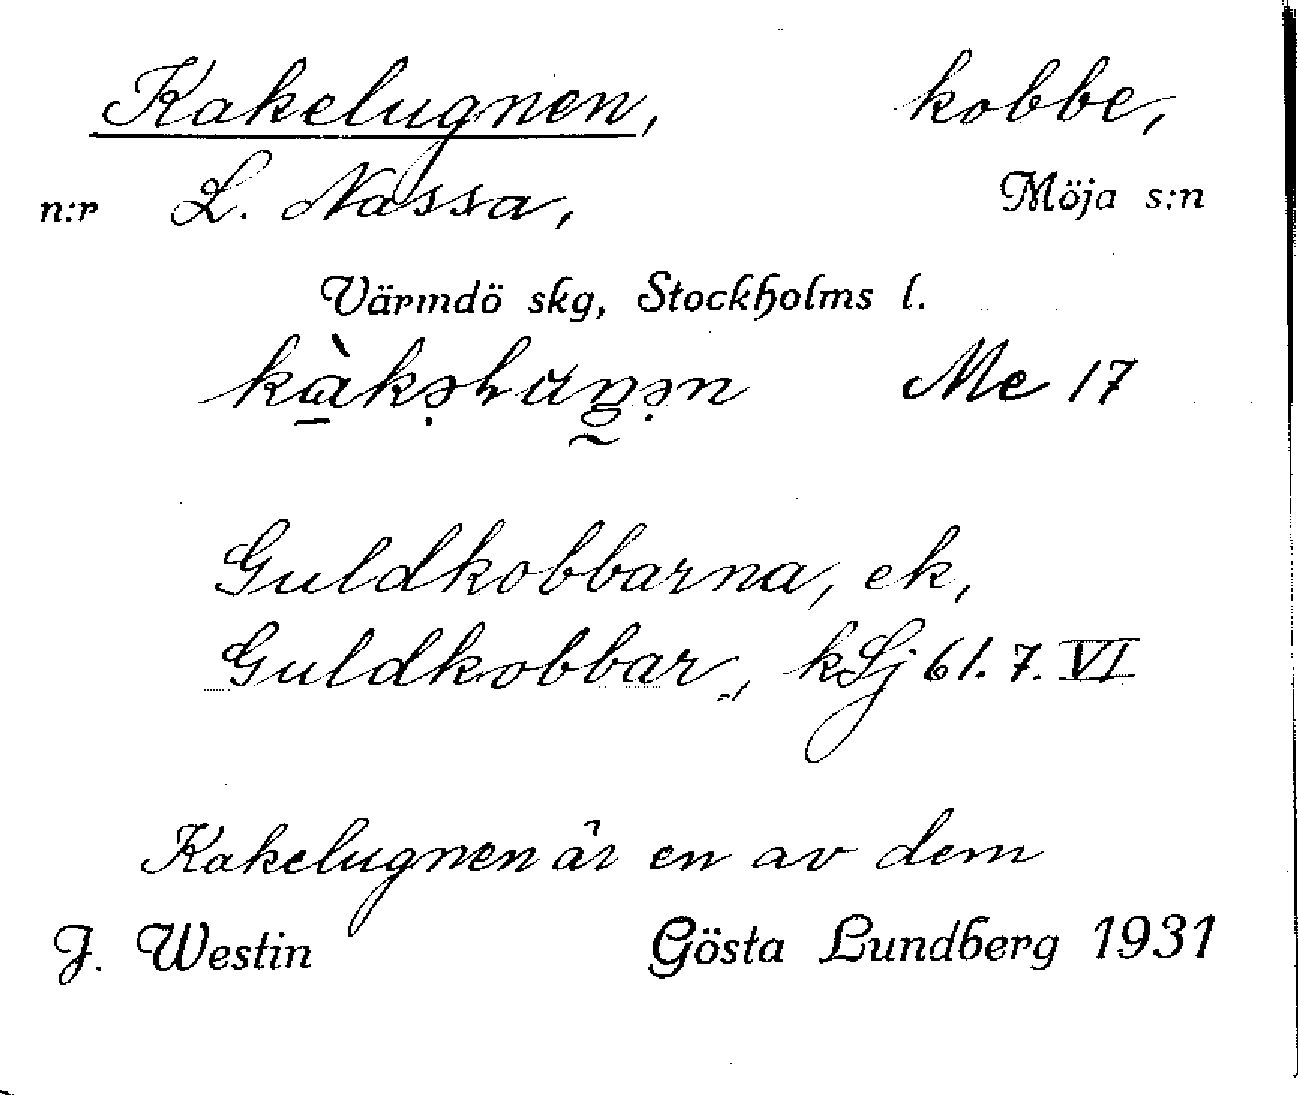 Kakelugnen, kobbe,
n:r L. Nassa, Möja s:n
Värmdö skg, Stockholms l.
Me 17
Guldkobbarna, ek,
Guldkobbar, kSj 61. 7. VI
Kakelugnen är en av dem
J. Westin Gösta Lundberg 1931